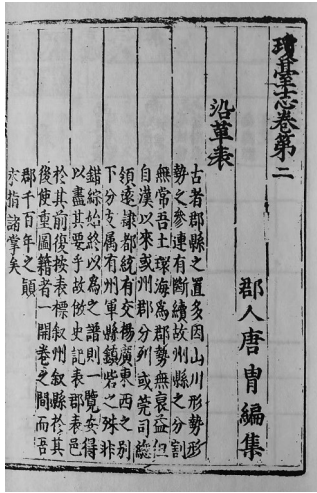 瓊臺志卷第二
郡人唐胄編集
沿革表
古者郡縣之置多因山川形勢形
勢之參連有斷續故州縣之分割
無常吾土環海為郡勢無裒益但
自漢以來或州郡分列或莞司總
領遠隸都統有交揚廣東西之別
下分支属有州軍縣鎮砦之殊非
錯綜始終以為之譜則一覽安得
以盡其要乎故倣史記表郡表邑
於其前復按表標叙州叙縣於其
後使重圖籍者一開卷之間而吾
郡千百年之顛
末指諸掌矣